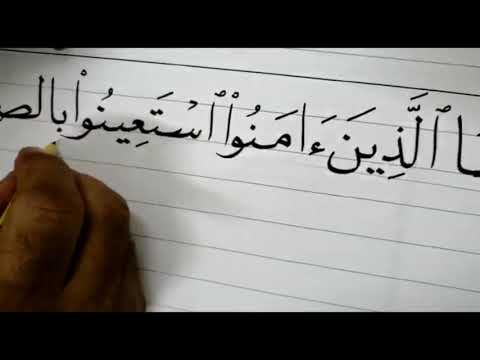 ـا ٱلَّذِينَ ءَامَنُوا۟ ٱسْتَعِينُوا۟ بالصـ